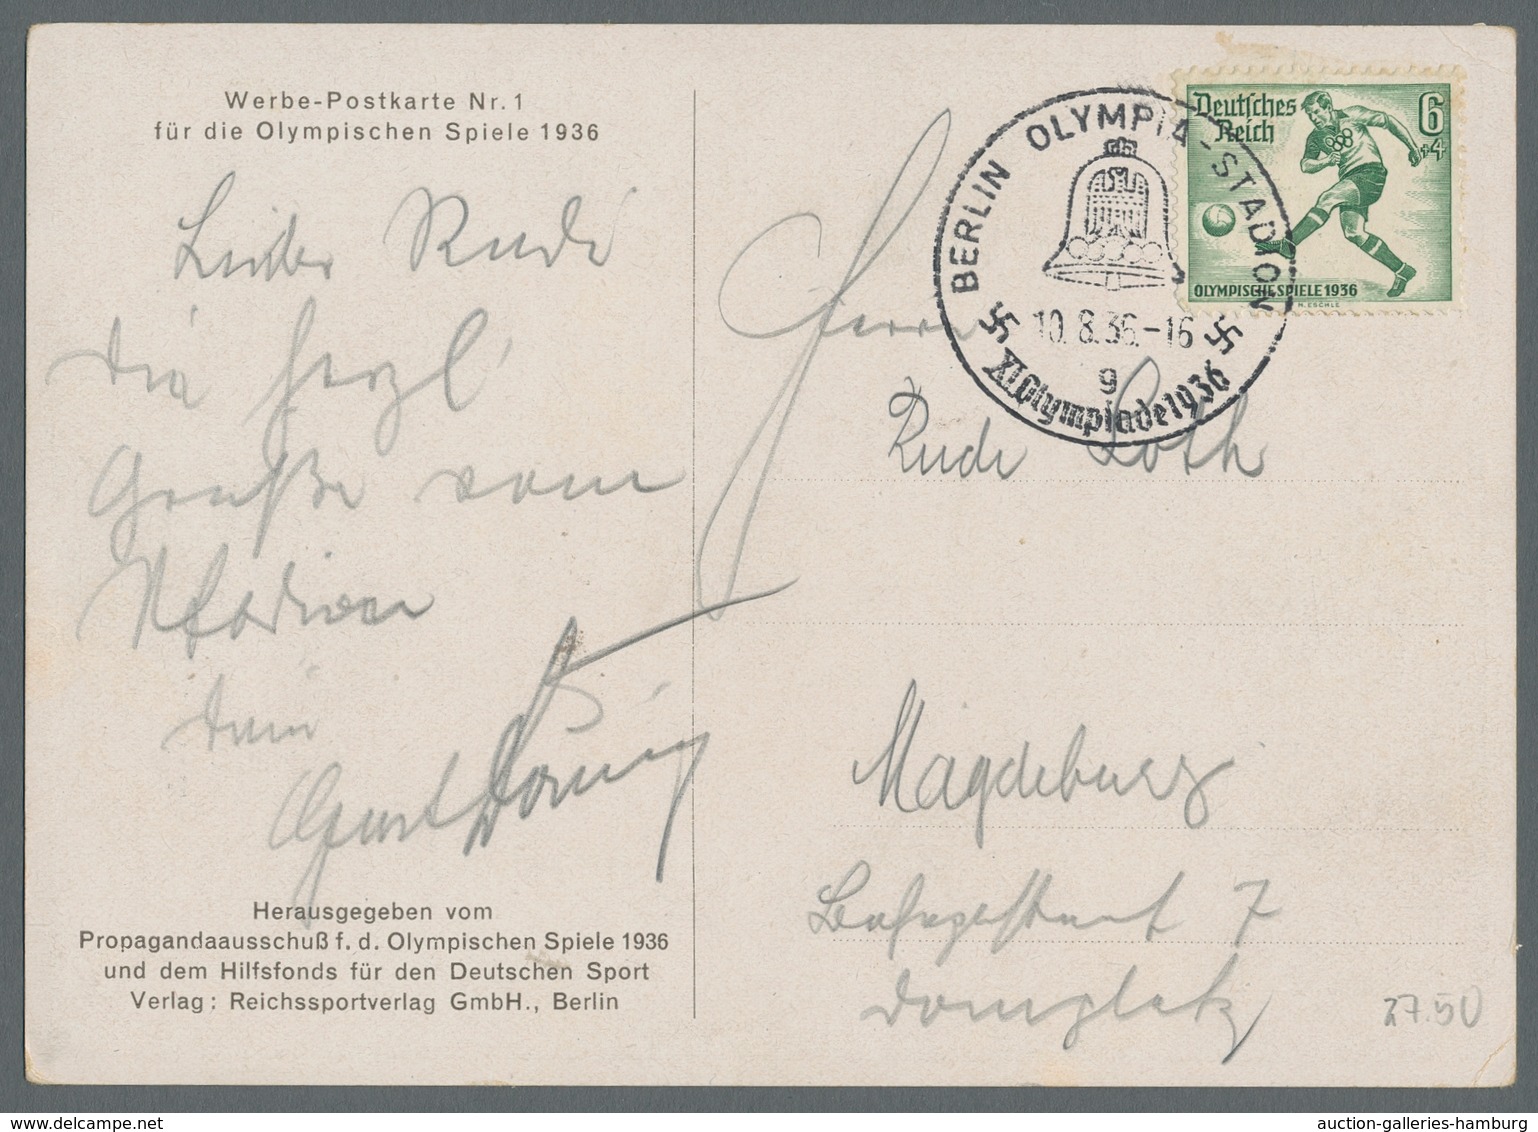 Werbe-Postkarte Nr. 1
für die Olympischen Spiele 1936
Lieber Rudi
die herzl
Grüße vom
Stadion
dein
Herausgegeben vom
Propagandaausschuß f. d. Olympischen Spiele 1936
und dem Hilfsfonds für den Deutschen Sport
Verlag: Reichssportverlag GmbH., Berlin
BERLIN OLYMPIA-STADION
10.8.36.-16
g
XI. Olympiade 1936
Deutsches
Reich
6
+4
OLYMPISCHE SPIELE 1936
H. ESCHLE
Herrn
Rudi Loth
Magdeburg
7
Domplatz
27.50
auction-galleries-hamburg